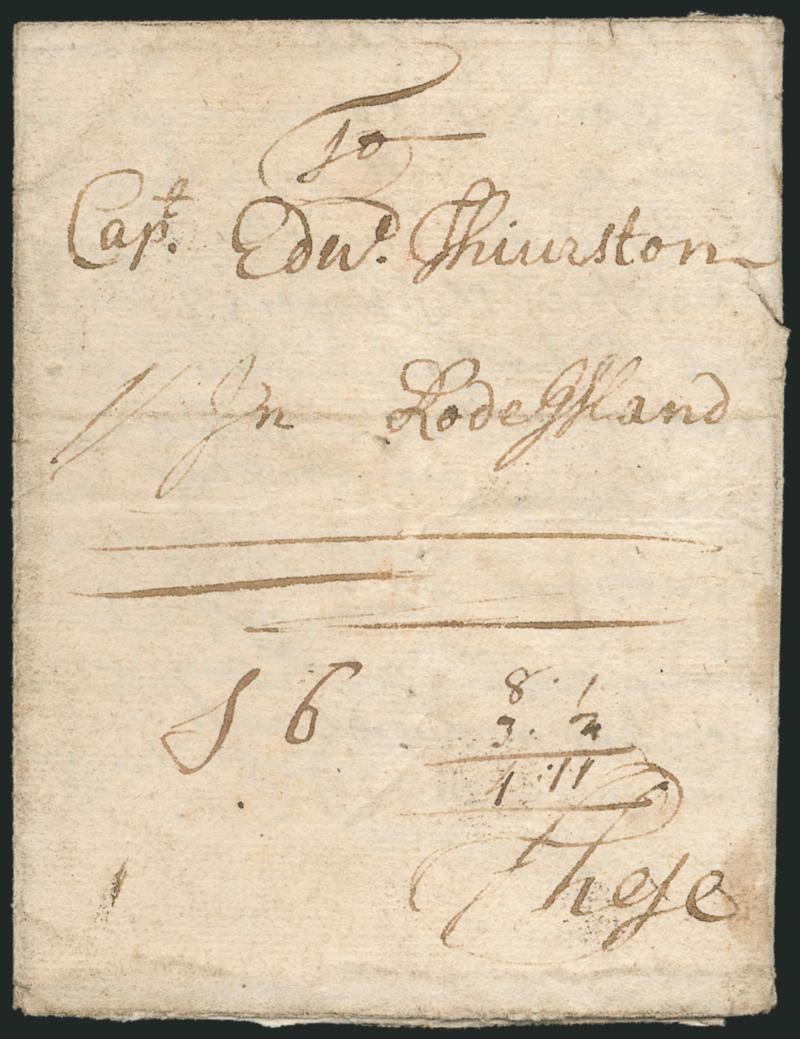 To
Capt. Edwd. Thiurston
In RodeIsland
S 6
8 . 1
3 . 2
1 : 11
These